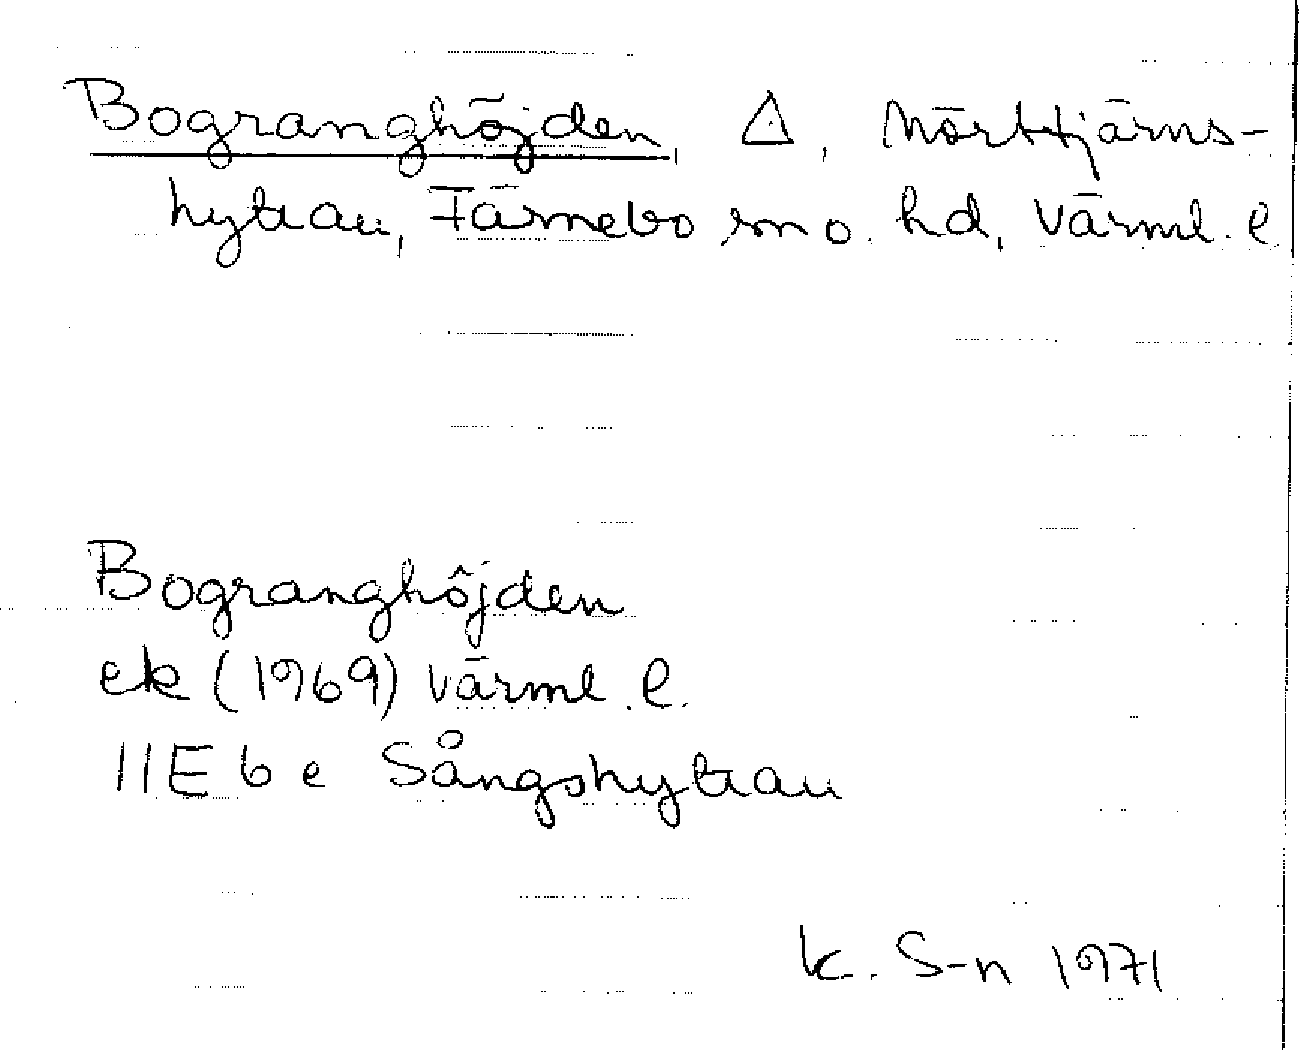 Bogranghöjden, Δ, Mörttjärns-
hyttan, Färnebo sn o. hd, Värml. l.
Bogranghöjden
ek (1969) Värml. l.
11E 6 e Sångshyttan
K. S-n 1971